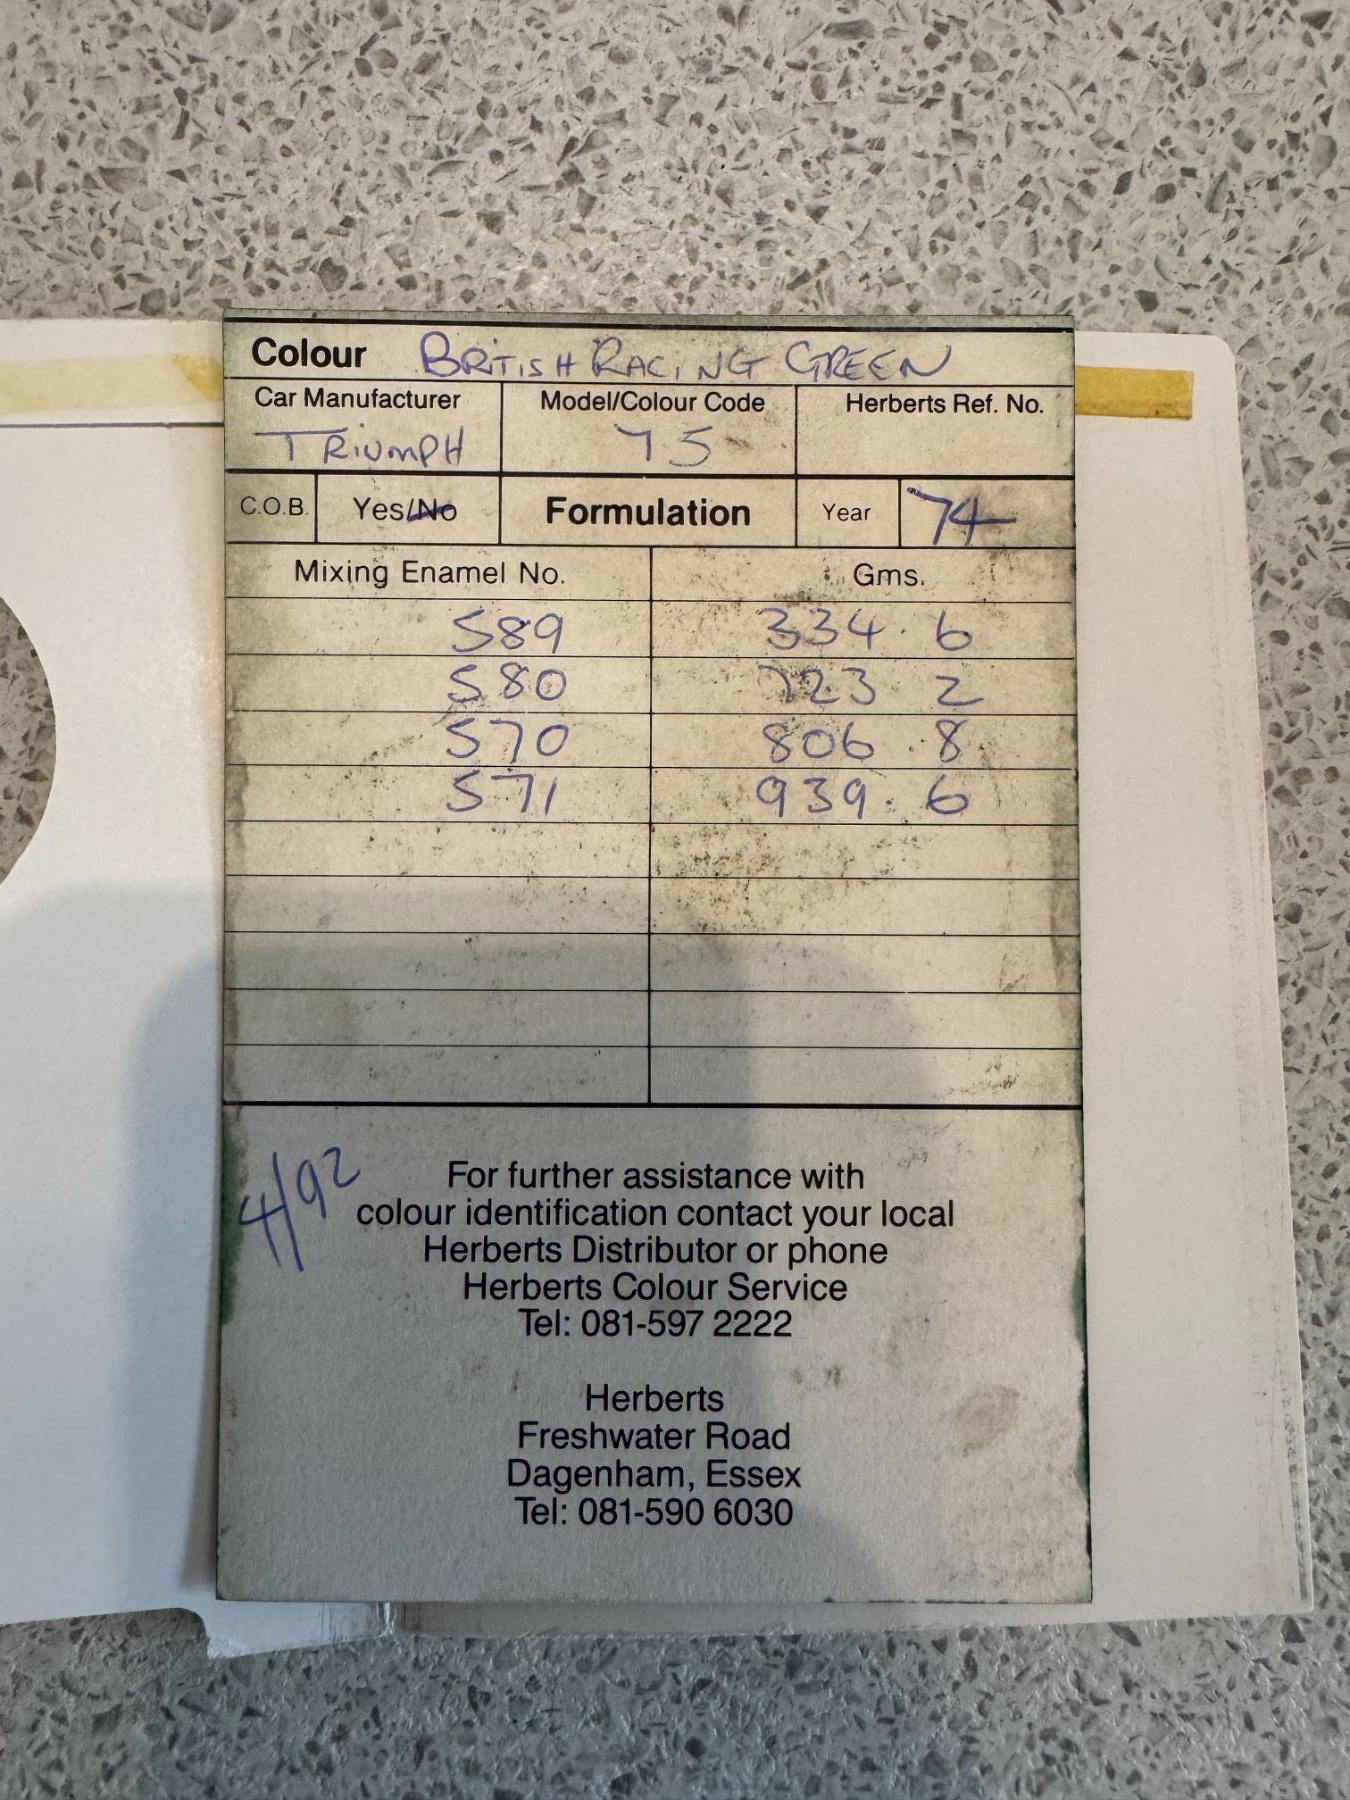 Colour BRITISH RACING GREEN
Car Manufacturer Model/Colour Code Herberts Ref. No.
TRIUMPH 75
C.O.B. Yes/No Formulation Year 74
Mixing Enamel No. Gms.
589 334.6
580 723 2
570 806.8
571 939.6
4/92
For further assistance with
colour identification contact your local
Herberts Distributor or phone
Herberts Colour Service
Tel: 081-597 2222
Herberts
Freshwater Road
Dagenham, Essex
Tel: 081-590 6030